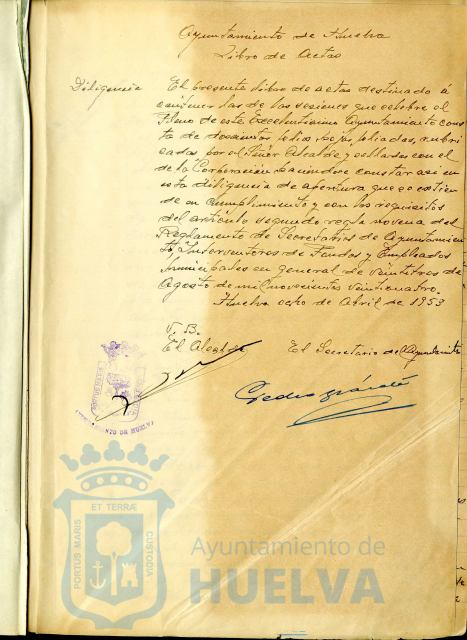 Ayuntamiento de Huelva
Libro de Actas
Diligencia El presente libro de actas destinado á
contener las de las sesiones que celebre el
Pleno de este Excelentísimo Ayuntamiento cons
ta de doscientos folios, foliadas, rubri
cadas por el Señor Alcalde y selladas con el
de la Corporación haciendose constar asi en
esta diligencia de apertura que se extien
de en cumplimiento y con los requisitos
del artículo segundo regla novena del
Reglamento de Secretarios de Ayuntamien
to, Interventores de Fondos y Empleados
Municipales en general de veintitres de
Agosto de mil novecientos veinticuatro.
Huelva ocho de Abril de 1953
V. B.
El Alcalde El Secretario del Ayuntamiento
AYUNTAMIENTO DE HUELVA
Pedro
PORTUS MARIS
ET TERRÆ
CUSTODIA
Ayuntamiento de
HUELVA